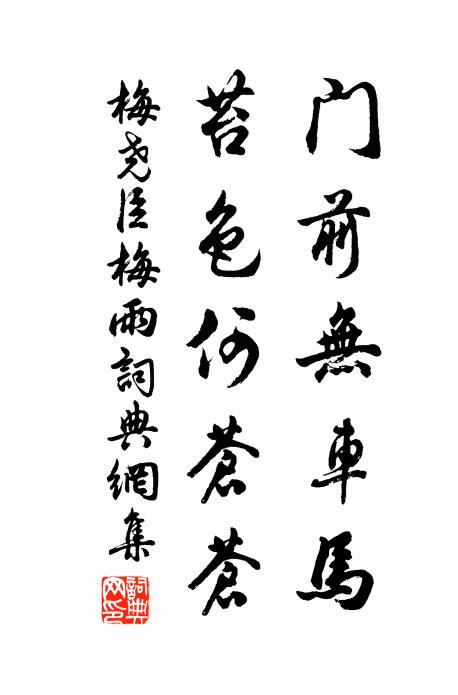 門前無車馬
苔色何蒼蒼
梅堯臣梅雨詞典網集
詞典網印